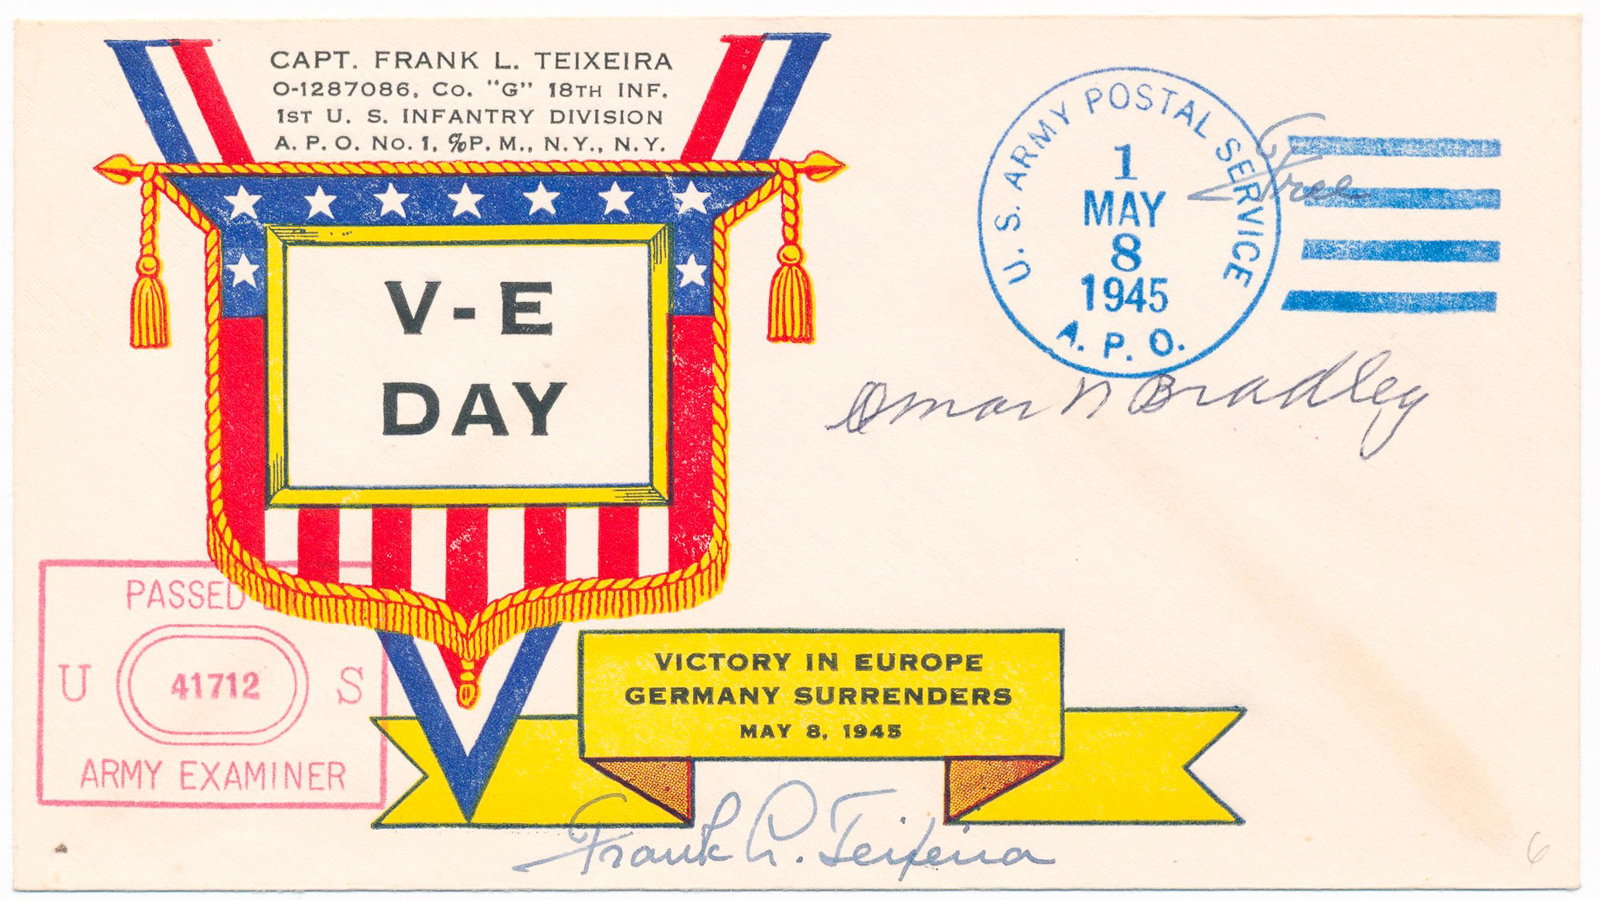 CAPT. FRANK L. TEIXEIRA
O-1287086, Co. "G" 18TH INF.
1ST U. S. INFANTRY DIVISION
A. P. O. No. 1, %P. M., N.Y., N.Y.
U. S. ARMY POSTAL SERVICE
1
MAY
8
1945
A. P. O.
Free
V-E
DAY
Omar N Bradley
PASSED
U 41712 S
ARMY EXAMINER
VICTORY IN EUROPE
GERMANY SURRENDERS
MAY 8, 1945
Frank L. Teixeira
6